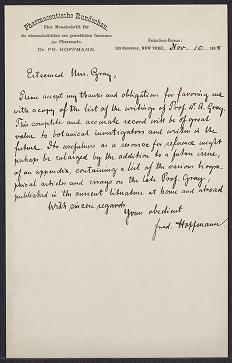 Pharmaceutische Rundschau.
Eine Monatsschrift für
die wissenschaftlichen und gewerblichen Interessen
der Pharmacie.
Dr. FR. HOFFMANN.
Redactions-Bureau:
183 Broadway, NEW YORK, Nov. 10. 188
Esteemed Mrs. Gray,
Please accept my thanks and obligations for favoring me
with a copy of the list of the writings of Prof. A. Gray.
This complete and accurate record will be of great
value to botanical investigators and writers in the
future. Its usefulness as a resource for reference might
perhaps be enlarged by the addition to a future issue,
of an appendix, containing a list of the various biogra-
phical articles and essays on the late Prof. Gray,
published in the current literature at home and abroad.
With sincere regards
Yours obedient
Fred. Hoffmann.